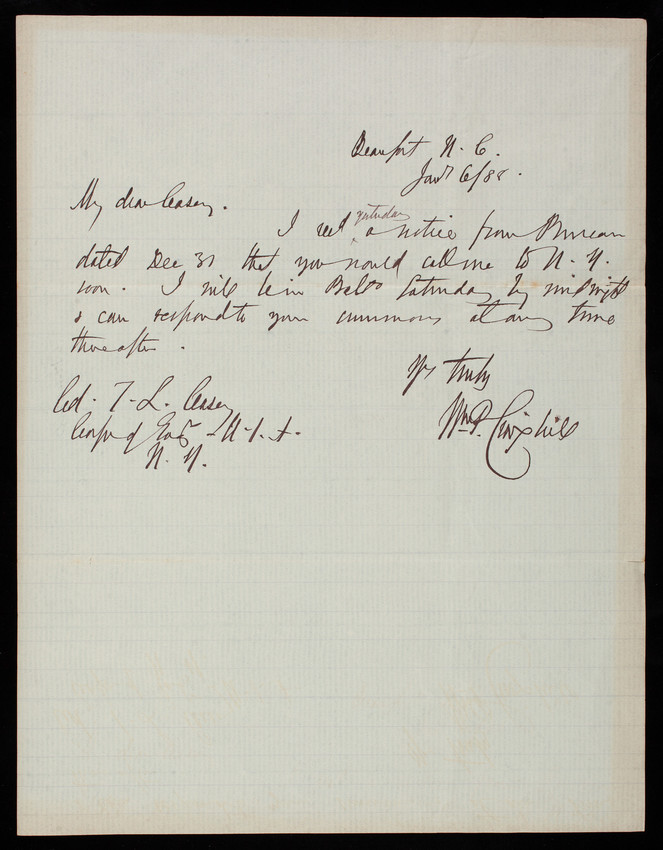 Beaufort N. C.
Jany 6/88.
My dear Casey.
I recd yesterday a notice from Bureau
dated Dec 31 that you would call me to N. Y.
soon. I will be in Balto Saturday by midnight
& can respond to your summons at any time
thereafter.
Yrs truly
Wm P. Craighill
Col. T. L. Casey
Corps of Eng - U. S. A.
N. Y.